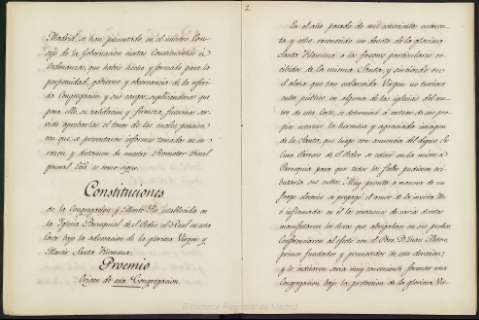 Madrid, se han presentado en el nuestro Con-
sejo de la Gobernacion ciertas Constituciones ú
Ordenanzas, que habeis hecho y formado para la
perpetuidad, gobierno y observancia de la referi-
da Congregacion y sus cargos, suplicandonos que
para ello, su validacion y firmeza, fuesemos ser-
vido aprobarlas: el tenor de las cuales, peticion
con que se presentaron informes tomados en su
razon, y dictamen de nuestro Promotor fiscal
general
Constituciones
de la Congregacion y Monte Pio, establecida en
la Iglesia Parroquial de el Señor de esta
Corte bajo la advocacion de la gloriosa Virgen y
Martir Santa Filomena.
Proemio
Origen de esta Congregacion.
2.
En el año pasado de mil ochocientos
y ocho, reconocida su devota de la gloriosa
Santa Filomena á los favores particulares re-
cibidos de la misma Santa, y
el alma que tan esclarecida Virgen no tuviera
culto público en alguna de las iglesias del cen-
tro de esta Corte, se determinó á costear de su pro-
pio la hermosa y agraciada imagen
de la Santa, que luego con anuencion del Señor
Cura Parroco de el Señor se colocó en la misma
Parroquia para que todos los fieles pudieran tri-
butarla sus cultos. Muy pronto á manera de un
fuego electrico se propagó el amor de la invicta
é inflamados en él los corazones de varios devotos
manifestaron los deseos que abrigaban en sus pechos.
Conferenciaron al efecto con el Pbro. D. Juan
primer fundador y promovedor de esta devocion;
y le indicaron sería muy conveniente formar una
Congregacion bajo la proteccion de la gloriosa Vir-
Biblioteca Regional de Madrid